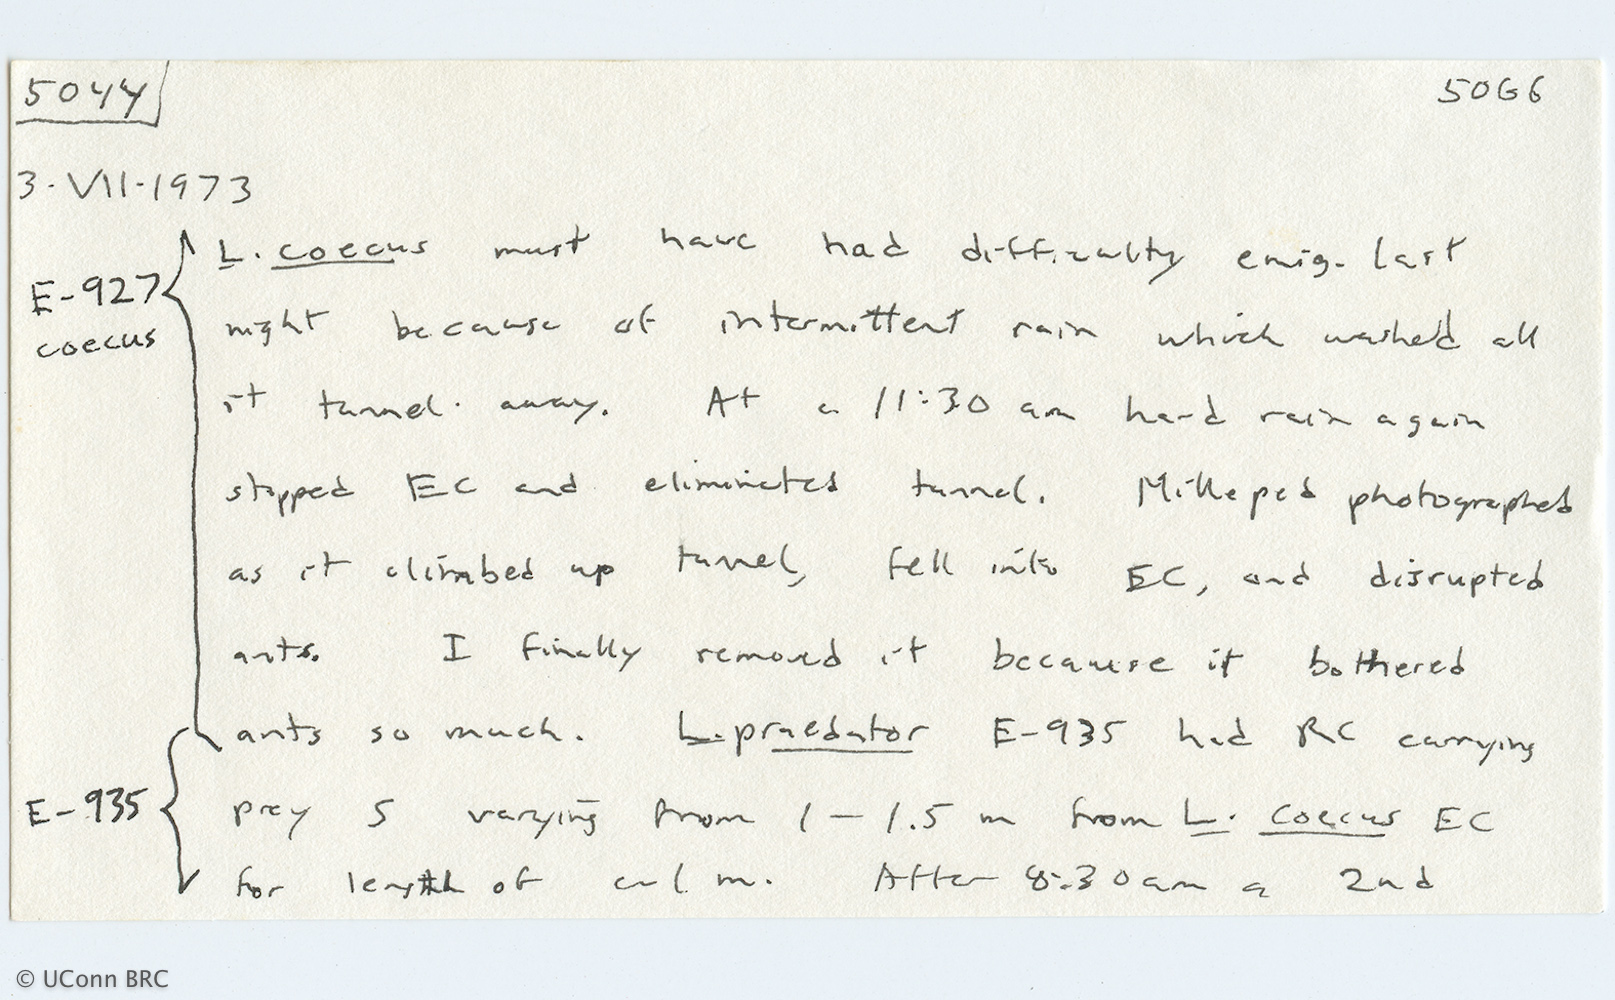 5044
5066
3·VII·1973
E-927
coecus
L. coecus must have had difficulty emig. last
night because of intermittent rain which washed all
it tunnel. away. At a 11:30 am hard rain again
stopped EC and eliminated tunnel. Milleped photographed
as it climbed up tunnel, fell into EC, and disrupted
ants. I finally removed it because it bothered
ants so much. L. praedator E-935 had RC carrying
E-935
prey S varying from 1 - 1.5 m from L. coecus EC
for length of m. After 8:30 am a 2nd
© UConn BRC